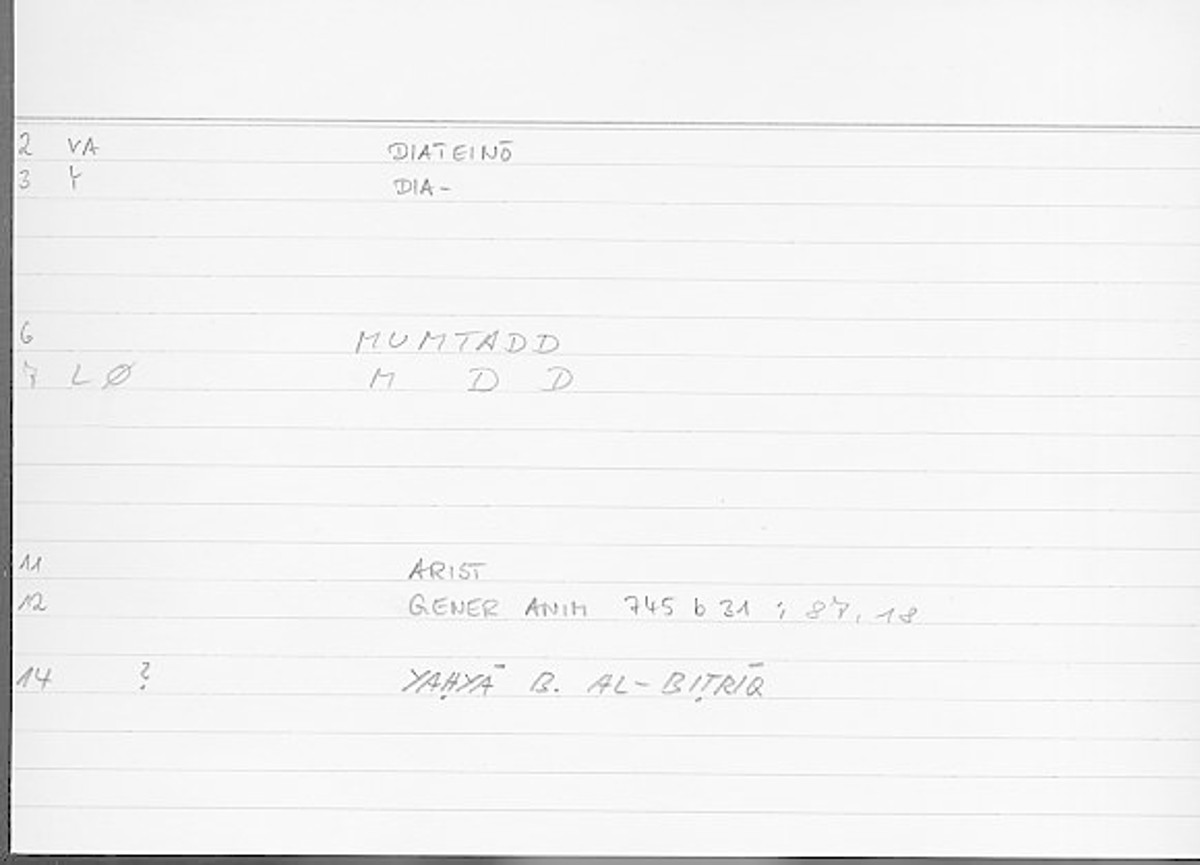 2 VA DIATEINŌ
3 DIA-
6 MUMTADD
7 L Ø M D D
11 ARIST
12 GENER ANIM 745 b 31 ; 87, 18
14 ? YAḤYĀ B. AL-BIṬRĪQ